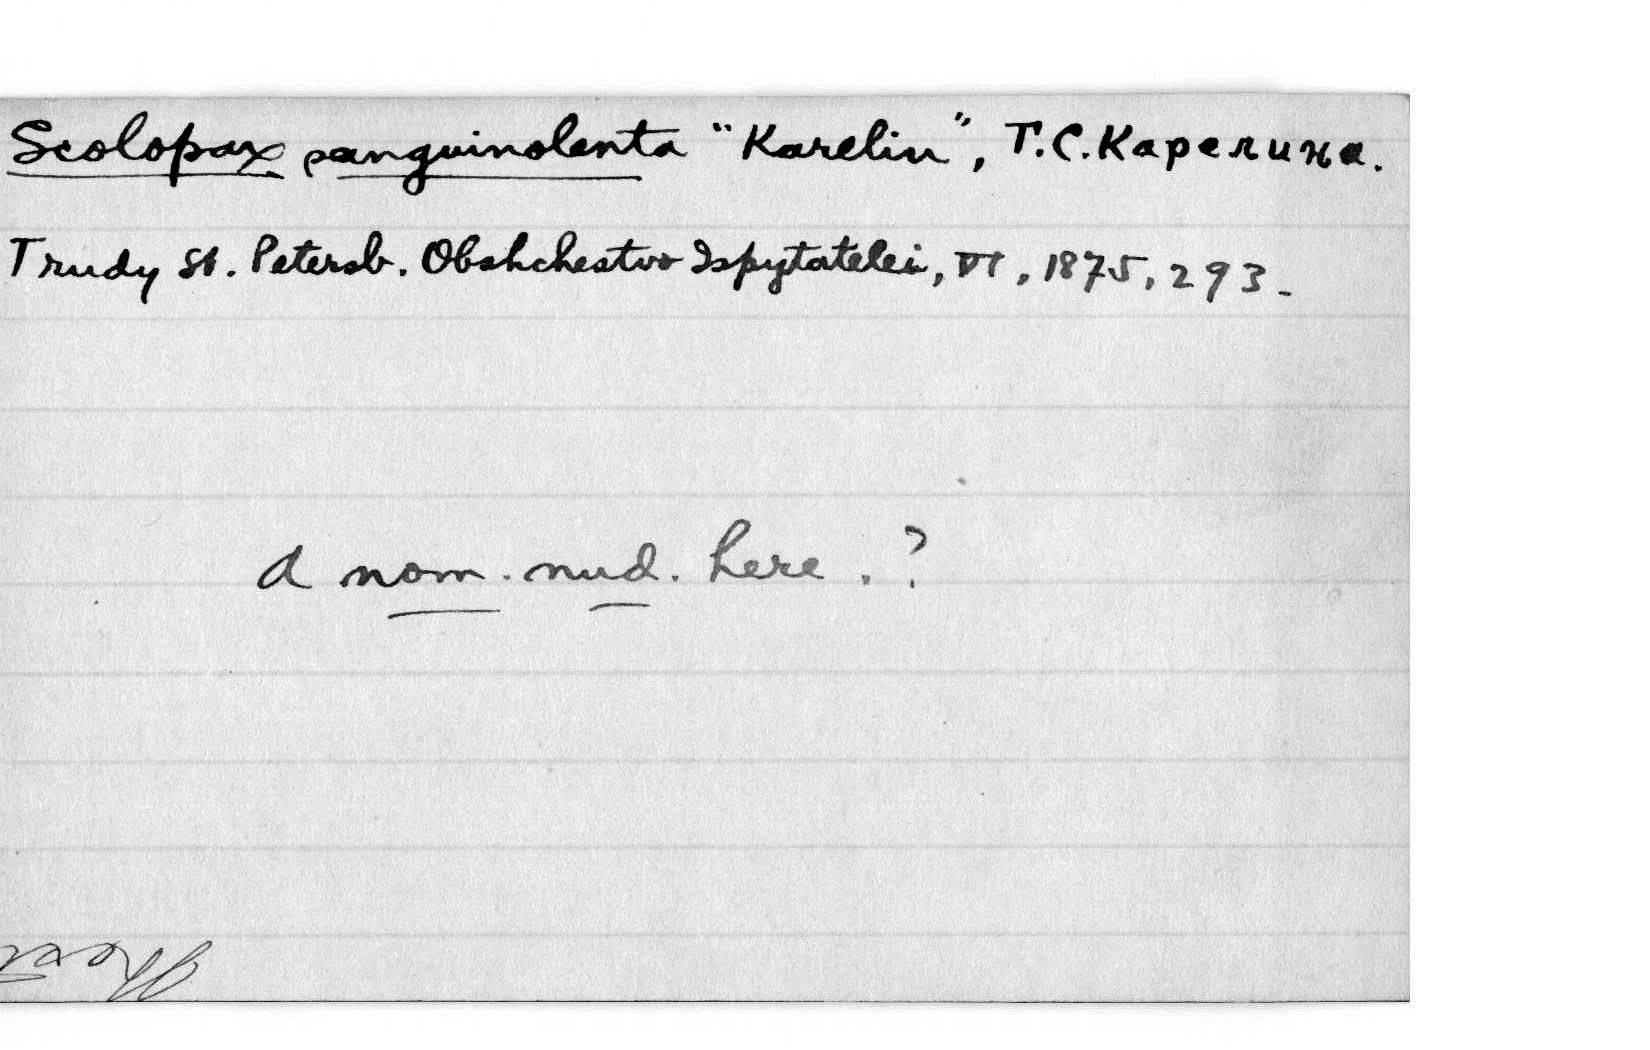 Scolopax sanguinolenta "Karelin", Г.С.Карелина.
Trudy St. Petersb. Obshchestvo Ispytatelei, VI, 1875, 293.
A nom. nud. here.?